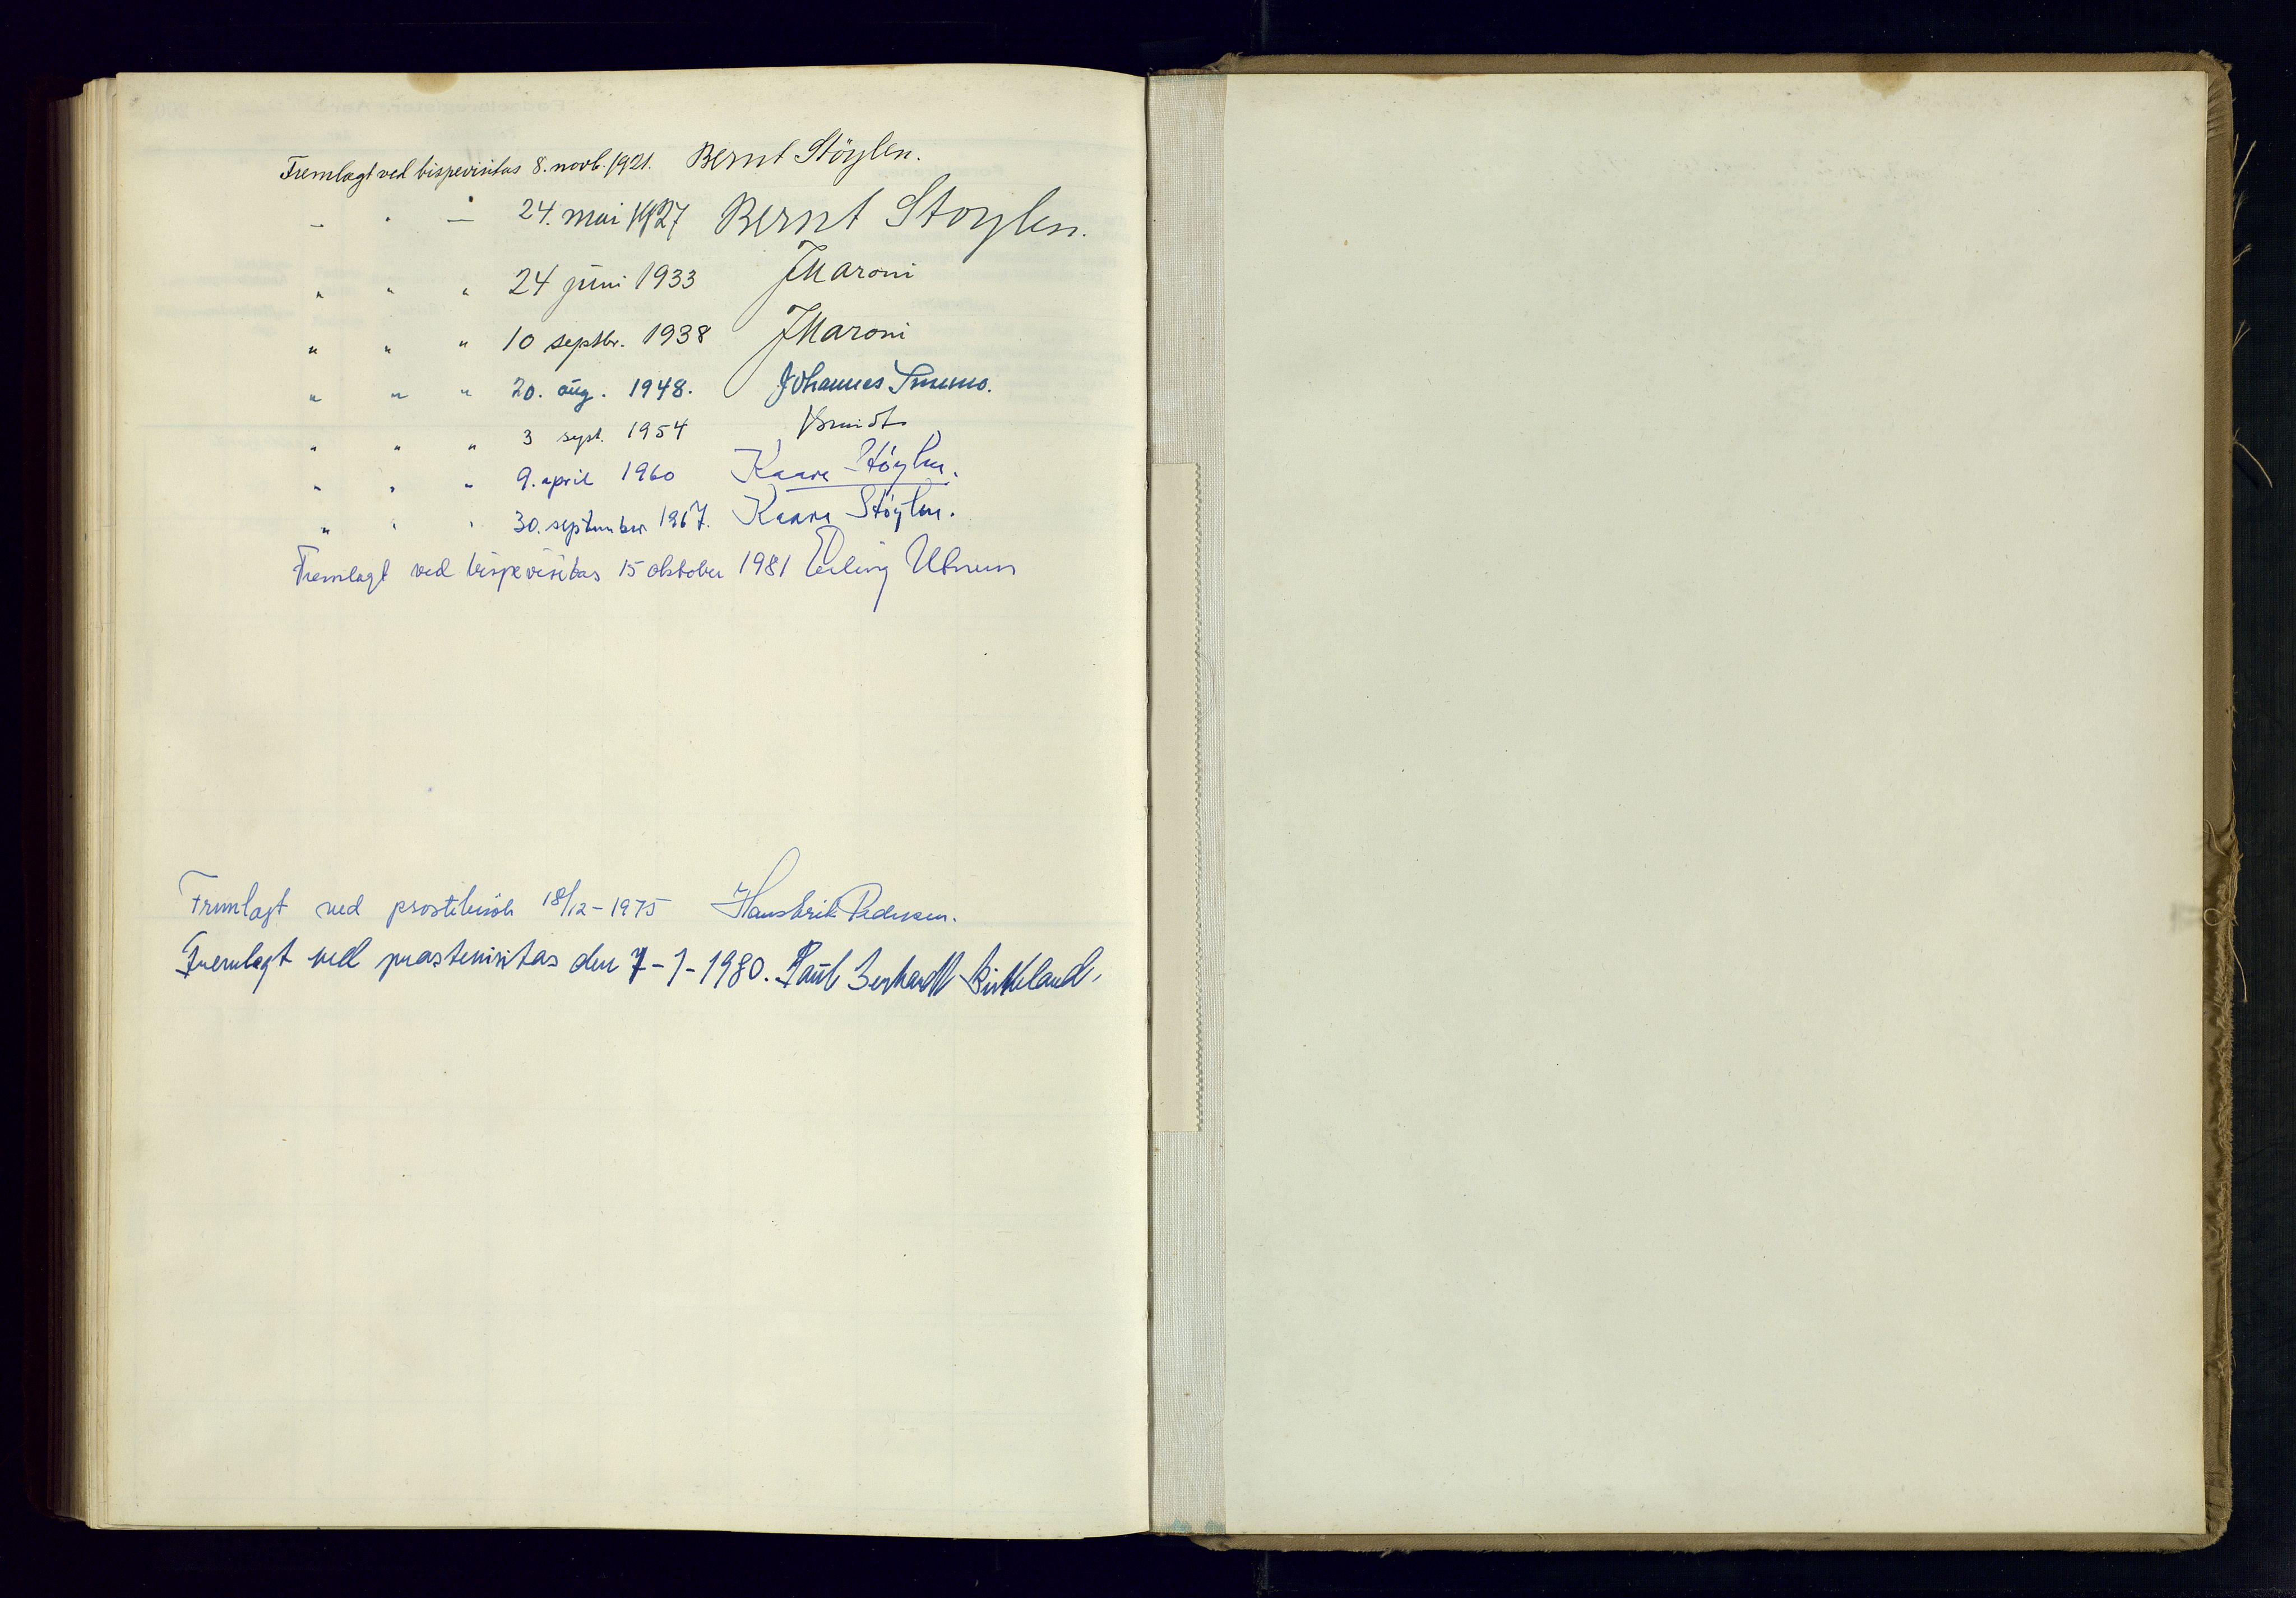 Fremlagt ved bispevisitas 8. novb. 1921. Bernt Støylen.
— " — 24. mai 1927 Bernt Støylen.
" " " 24 juni 1933 JMaroni
" " " 10 septbr. 1938 JMaroni
" " " 20. aug. 1948. Johannes Smemo.
" " " 3 sept. 1954
" " " 9. april 1960 Kaare Støylen.
" " " 30. september 1967. Kaare Støylen.
Fremlagt ved bispevisitas 15 oktober 1981 Erling Utnem
Fremlagt ved prostebesøk 18/12-1975 Hans Erik Pedersen.
Fremlagt ved prostevisitas den 7-1-1980. Paul Gerhardt Birkeland.